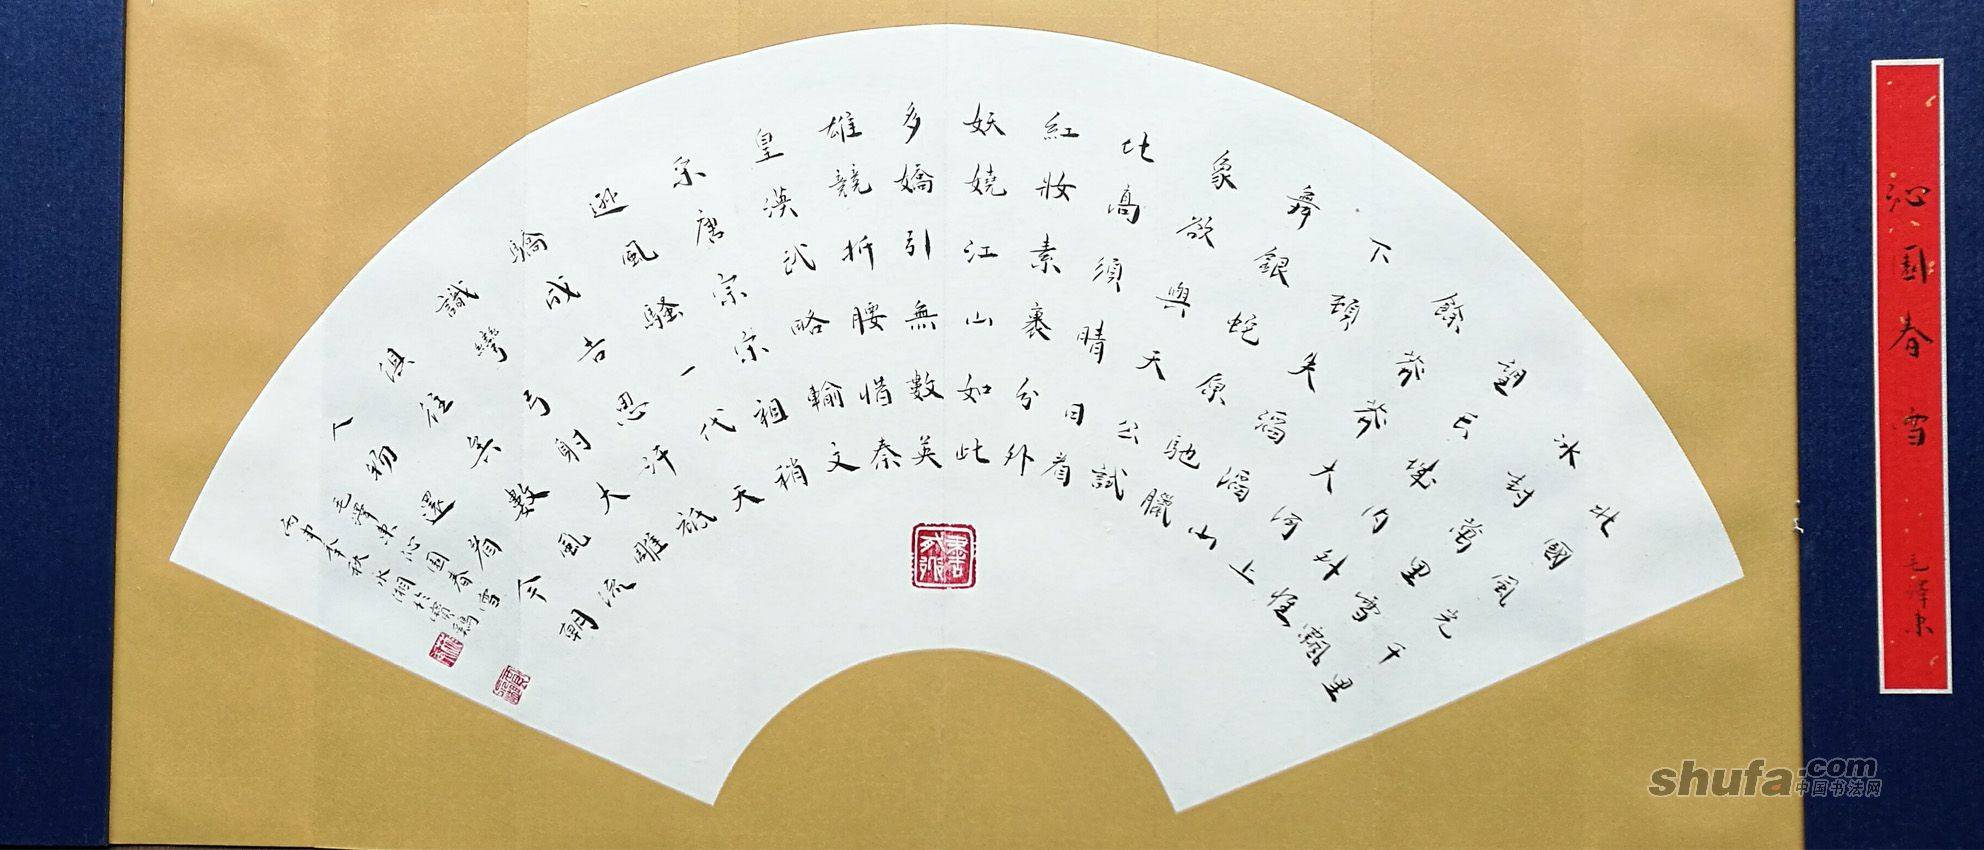 北國風光千里
冰封萬里雪飄
望长城内外惟
餘莽莽大河上
下頓失滔滔山
舞銀蛇原馳臘
象欲與天公試
比高須晴日看
紅妝素裹分外
妖嬈江山如此
多嬌引無數英
雄競折腰惜秦
皇漢武略輸文
采唐宗宋祖稍
遜風騷一代天
驕成吉思汗祗
識彎弓射大雕
俱往矣數風流
人物還看今朝
毛澤東沁園春雪
丙申秋水湘於寶鷄
沁園春雪
毛澤東
shufa.com
中国书法网